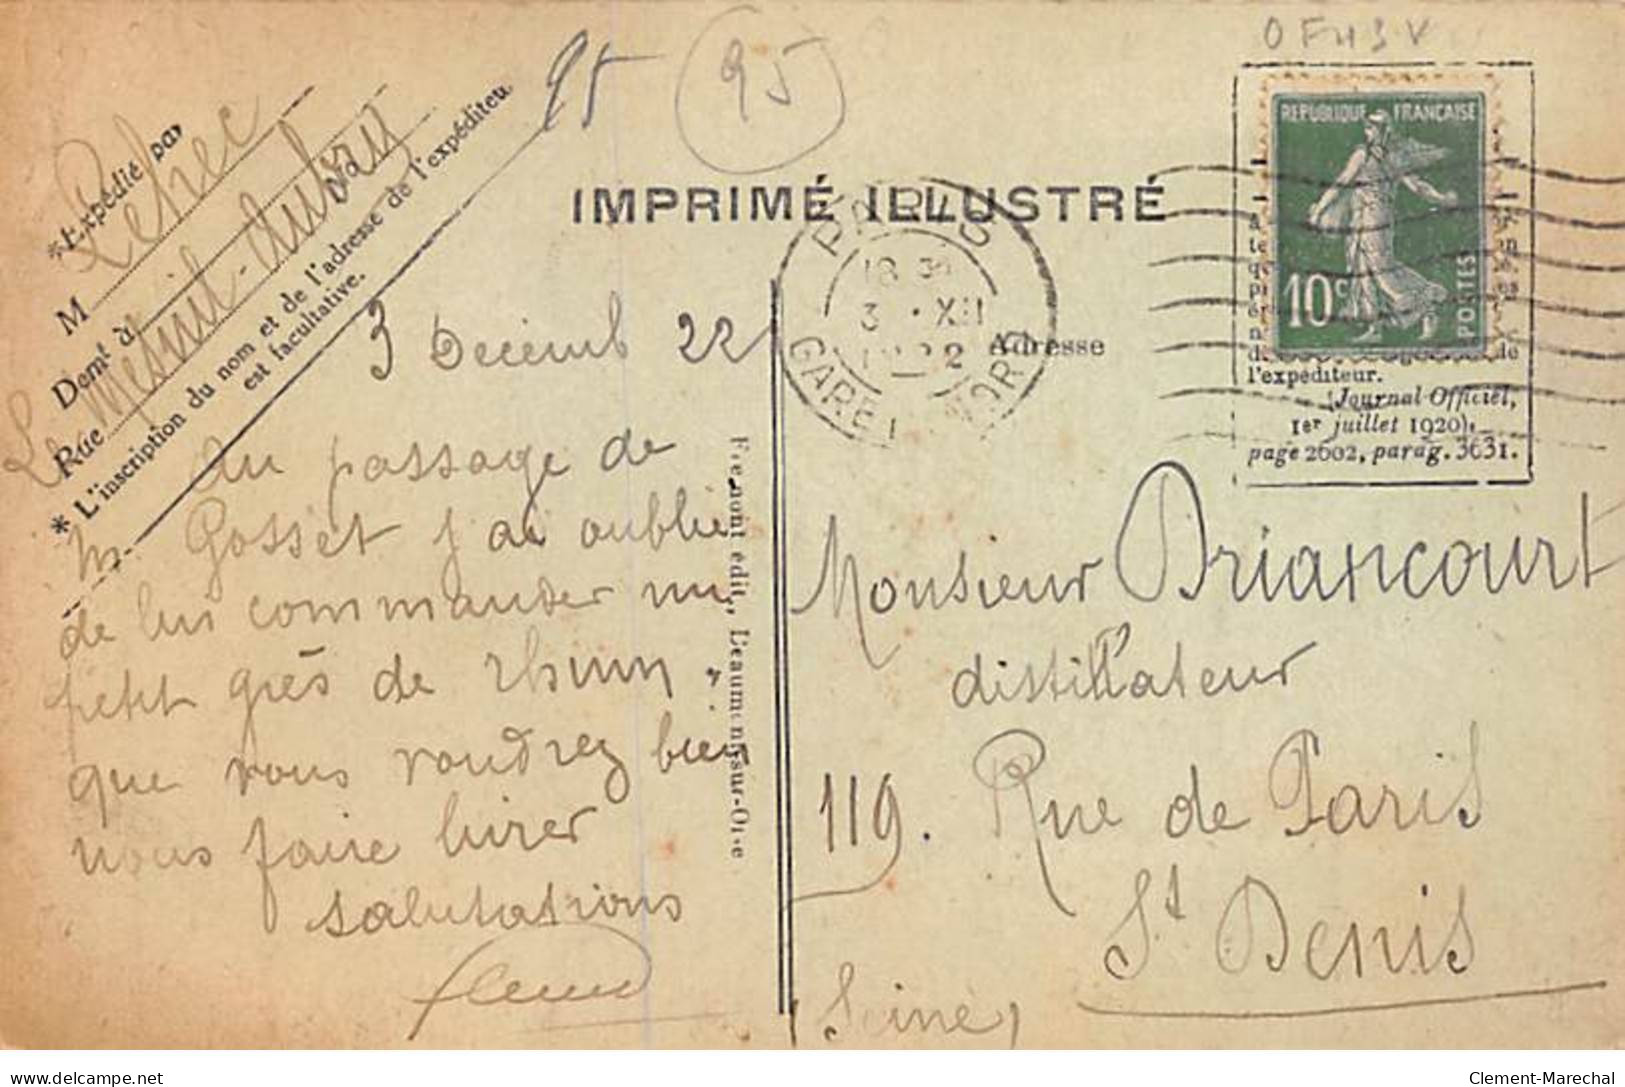 OF43V
95
95
*Expédié par
M Lehec
Demt à
Rue
Le Mesnil-Aubry
* L'inscription du nom et de l'adresse de l'expéditeur
est facultative.
IMPRIMÉ ILLUSTRÉ
REPUBLIQUE FRANÇAISE
10c
POSTES
PARIS
18 30
3 · XII
1922
GARE NORD
Adresse
de
l'expéditeur.
(Journal Officiel,
1er juillet 1920),
page 2602, parag. 3631.
3 Décemb 22
Au passage de
M. Gosset j'ai oublié
de lui commander un
petit grès de rhum.
que vous voudrez bien
nous faire livrer
salutations
Fremont édit., Beaumont-sur-Oise
Monsieur Briancourt
distillateur
119. Rue de Paris
St Denis
(Seine)
Clement-Marechal